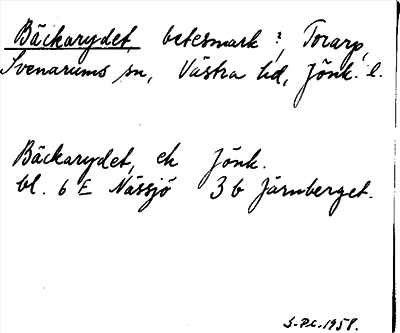 Bäckarydet, betesmark?, Torarp,
Svenarums sn, Västra hd, Jönk. l.
Bäckarydet, ek Jönk.
bl. 6 E Nässjö 3 b Järnberget.
S.-P.C. 1958.